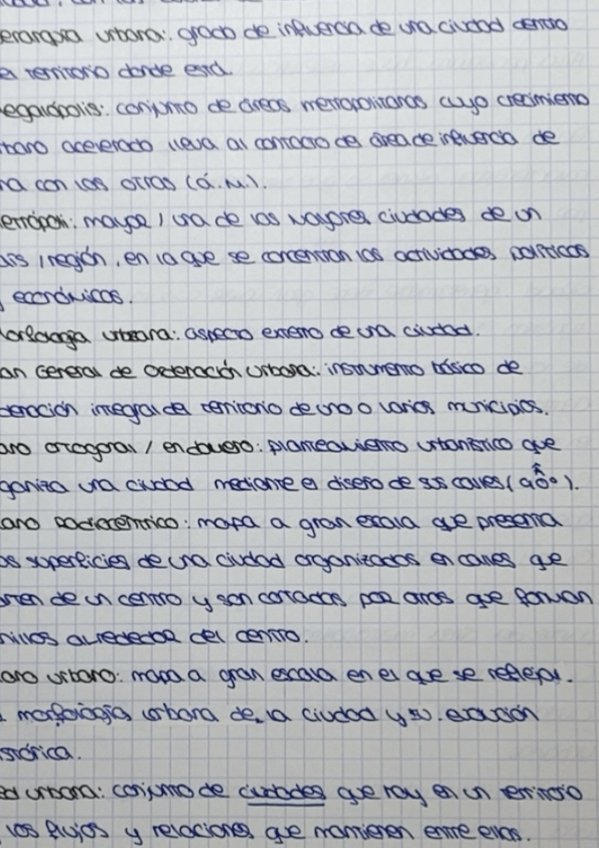 erarquía urbana: grado de influencia de una ciudad dentro
el territorio donde está.
egalópolis: conjunto de áreas metropolitanas cuyo crecimiento
rbano acelerado lleva al contacto del área de influencia de
na con las otras (á.M.).
etrópoli: mayor / una de las mayores ciudades de un
aís / región, en la que se concentran las actividades políticas
económicas.
orfología urbana: aspecto externo de una ciudad.
an General de Ordenación urbana: instrumento básico de
denación integral del territorio de uno o varios municipios.
ano ortogonal / en damero: planteamiento urbanístico que
ganiza una ciudad mediante el diseño de sus calles (90°).
ano radiocéntrico: mapa a gran escala que presenta
as superficies de una ciudad organizados en calles que
arten de un centro y son cortadas por otras que forman
nillos alrededor del centro.
ano urbano: mapa a gran escala en el que se refleja.
a morfología urbana de la ciudad y su evolución
stórica.
ed urbana: conjunto de ciudades que hay en un territorio
los flujos y relaciones que mantienen entre ellas.